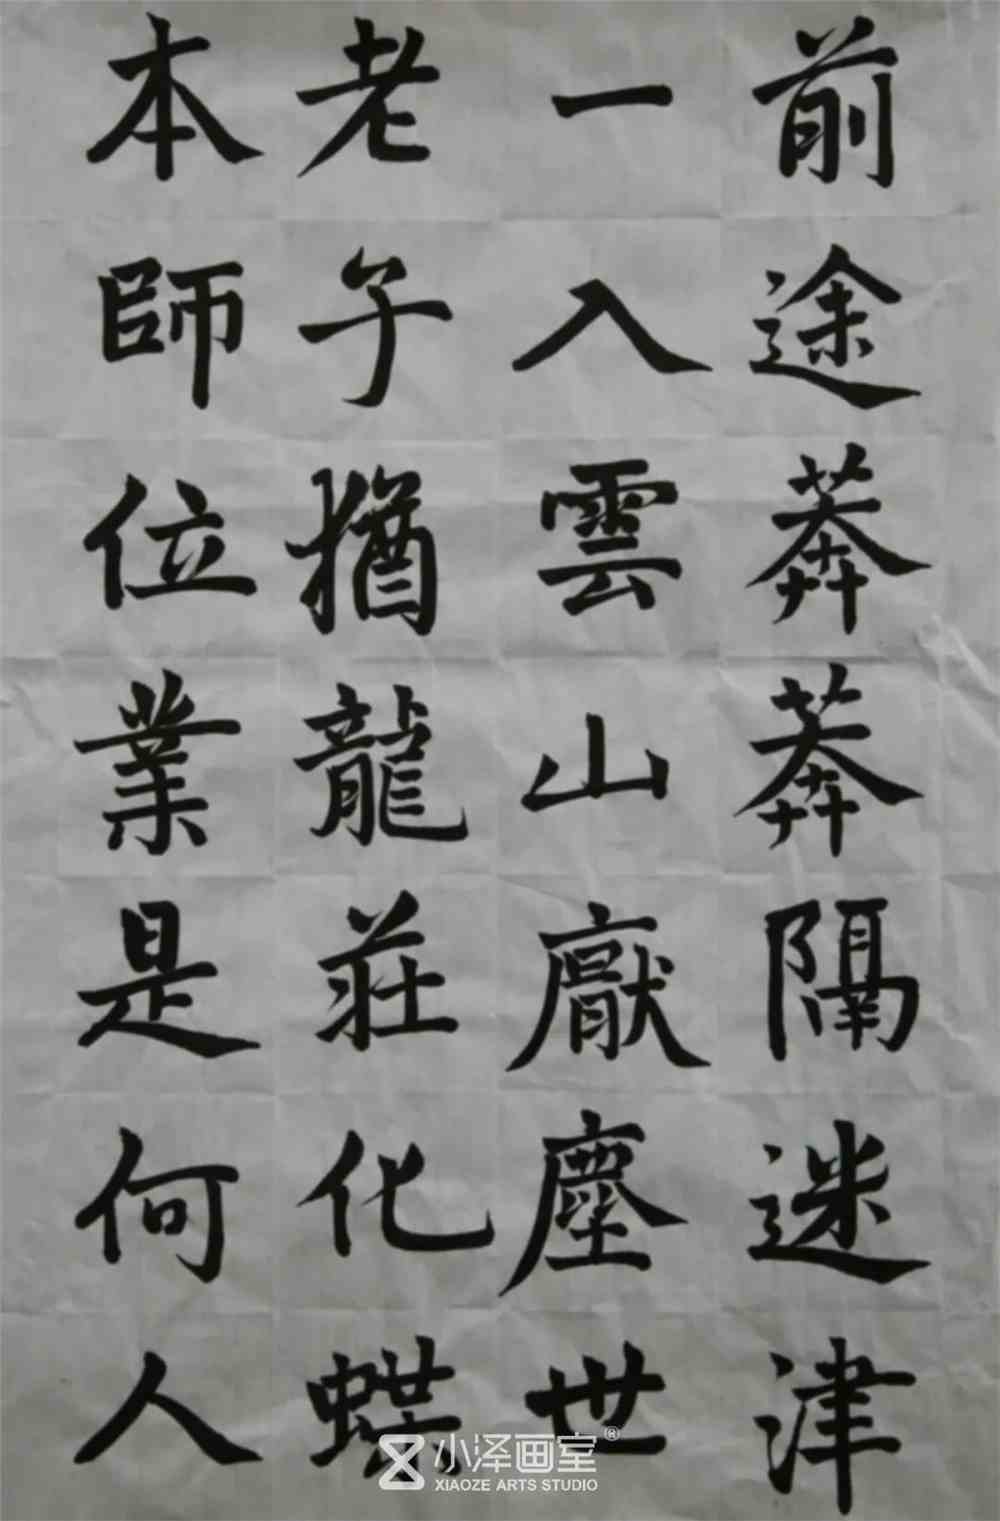 前途莽莽隔迷津
一入雲山厭塵世
老子猶龍莊化蝶
本師位業是何人
小泽画室®
XIAOZE ARTS STUDIO